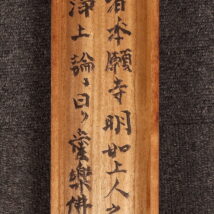 者本願寺明如上人之
淨土論ニ曰ク愛樂佛